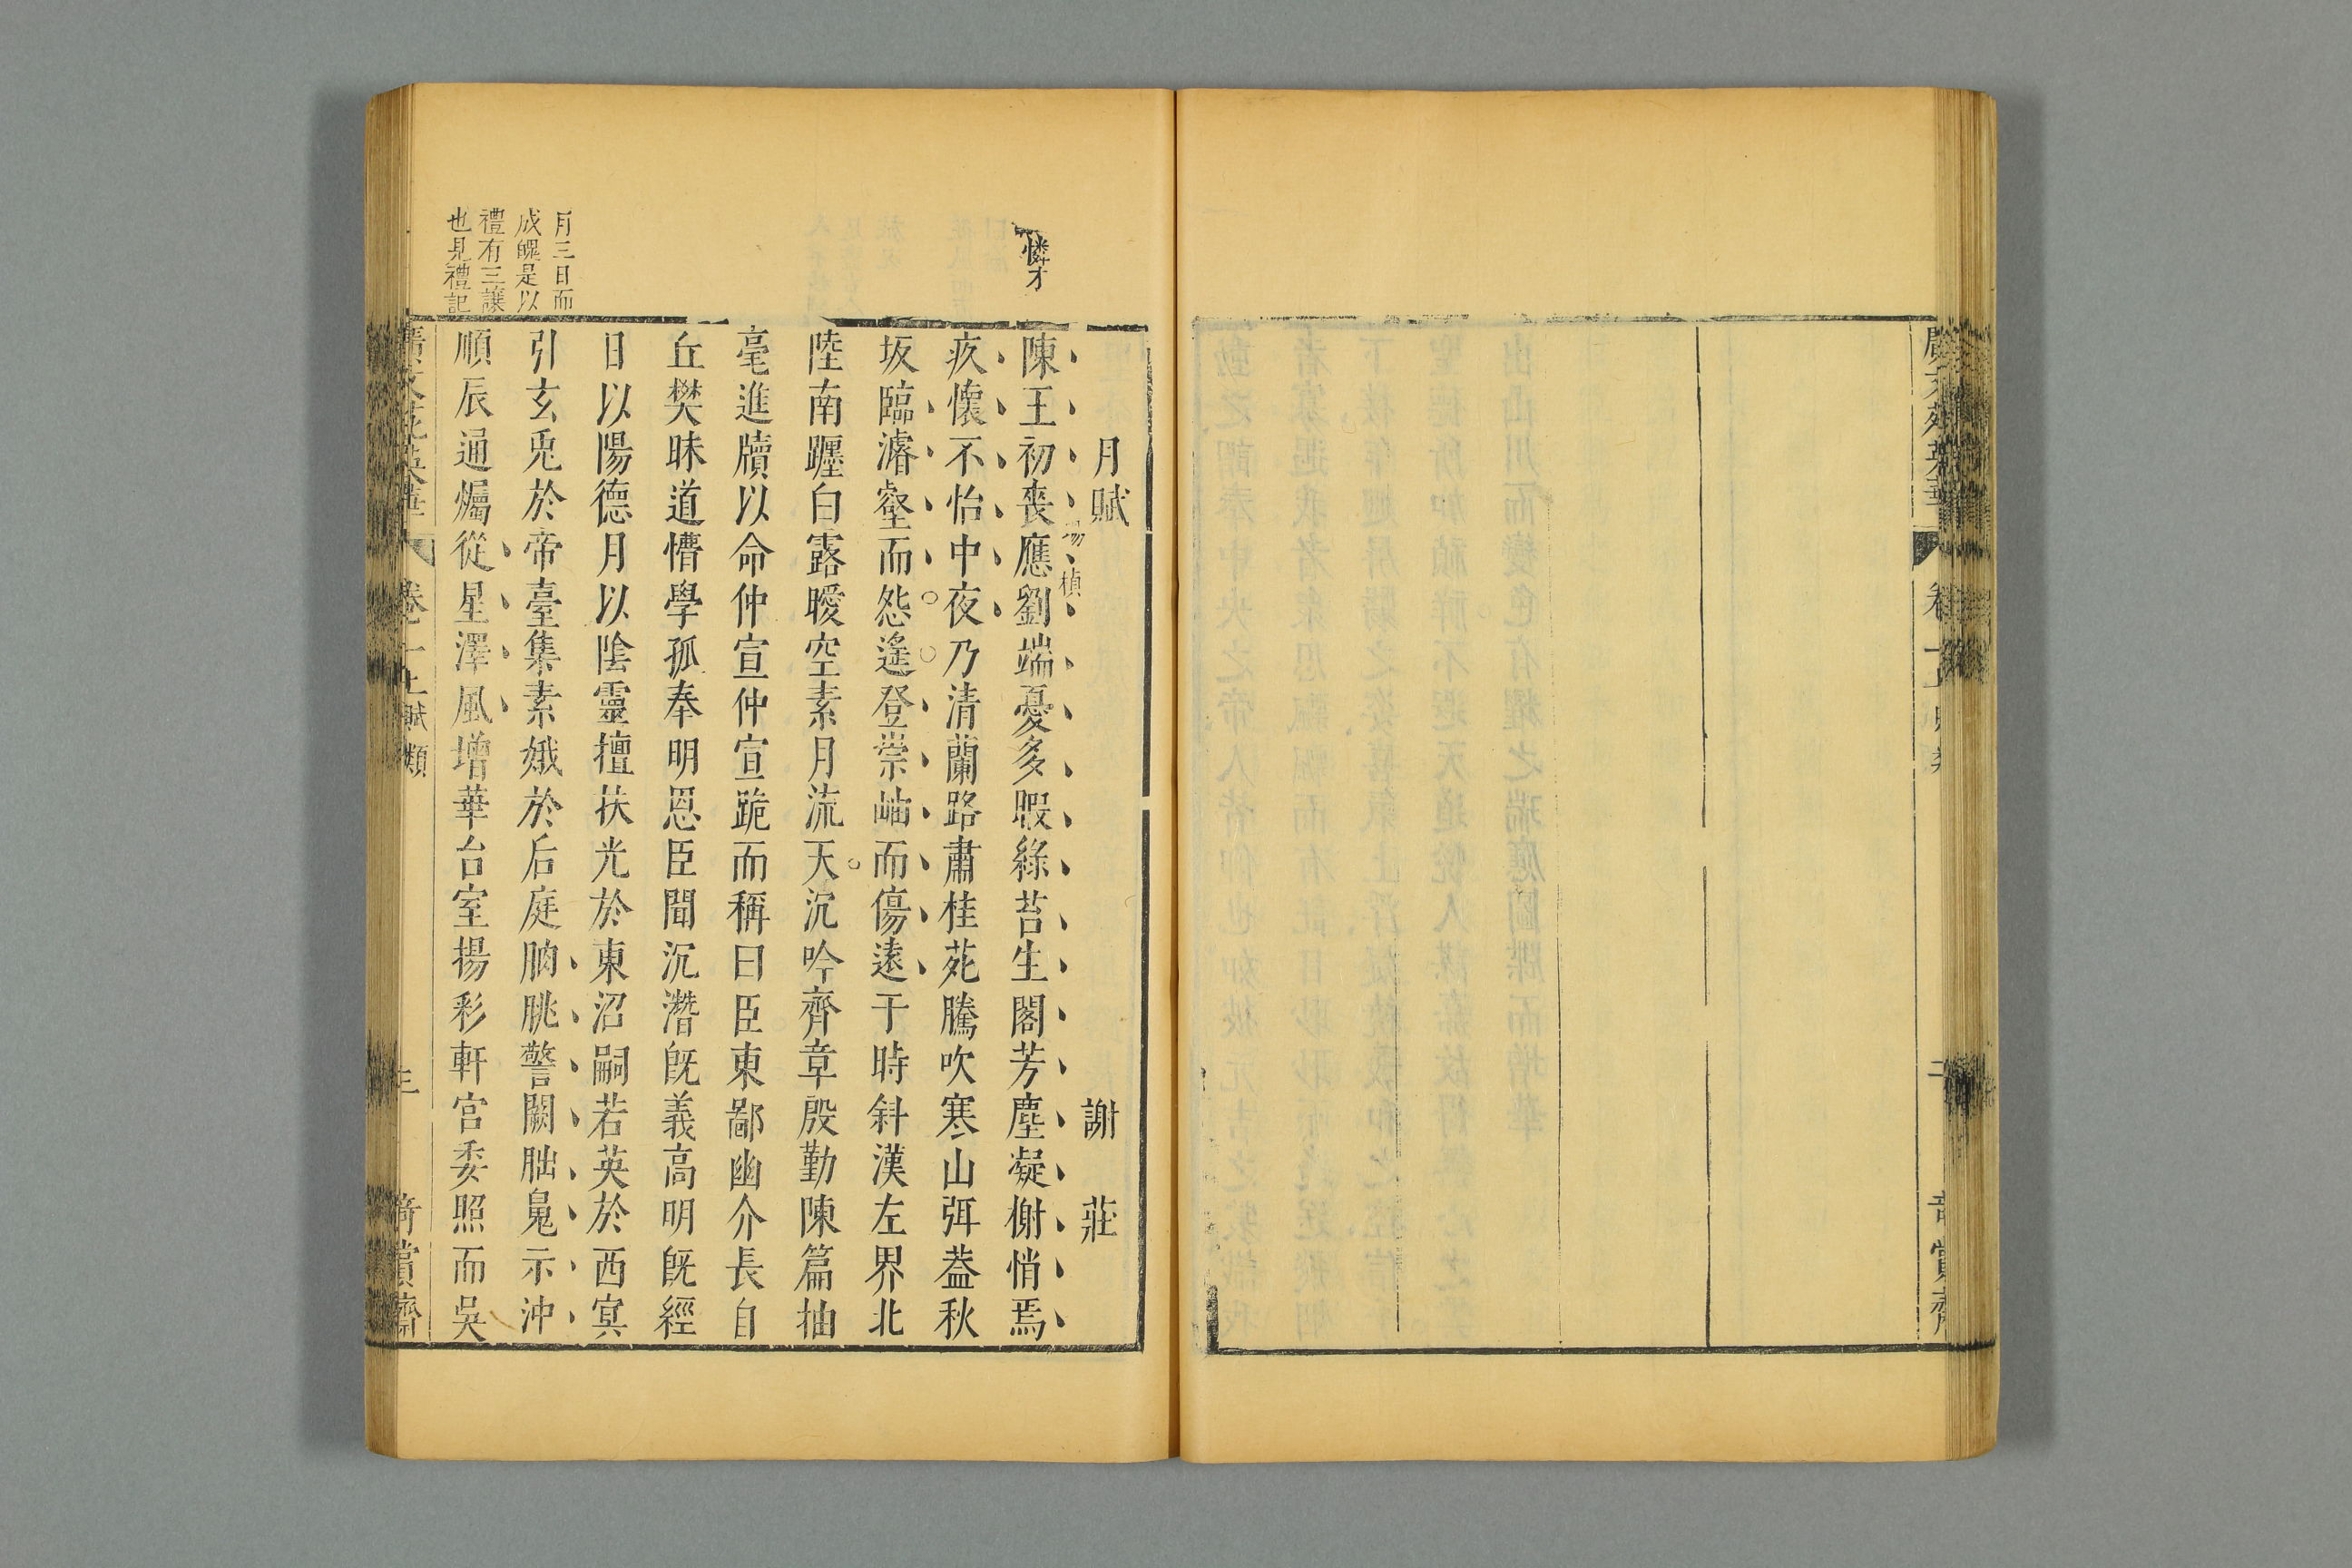 月賦 謝莊
憐才
陳王初喪應劉端憂多暇綠苔生閣芳塵凝榭悄焉
瑒 楨
疚懷不怡中夜乃清蘭路肅桂苑騰吹寒山弭葢秋
坂臨濬壑而怨遙登崇岫而傷遠于時斜漢左界北
陸南躔白露曖空素月流天沉吟齊章殷勤陳篇抽
毫進牘以命仲宣仲宣跪而稱曰臣東鄙幽介長自
丘樊昧道懵學孤奉明恩臣聞沉潛旣義高明旣經
日以陽德月以陰靈擅扶光於東沼嗣若英於西冥
引玄兎於帝臺集素娥於后庭朒朓警闕朏魄示沖
順辰通爥從星澤風增華台室揚彩軒宮委照而吳
月三日而
成魄是以
禮有三讓
也見禮記
廣文苑英華 卷十上 賦類 三 奇賞齋